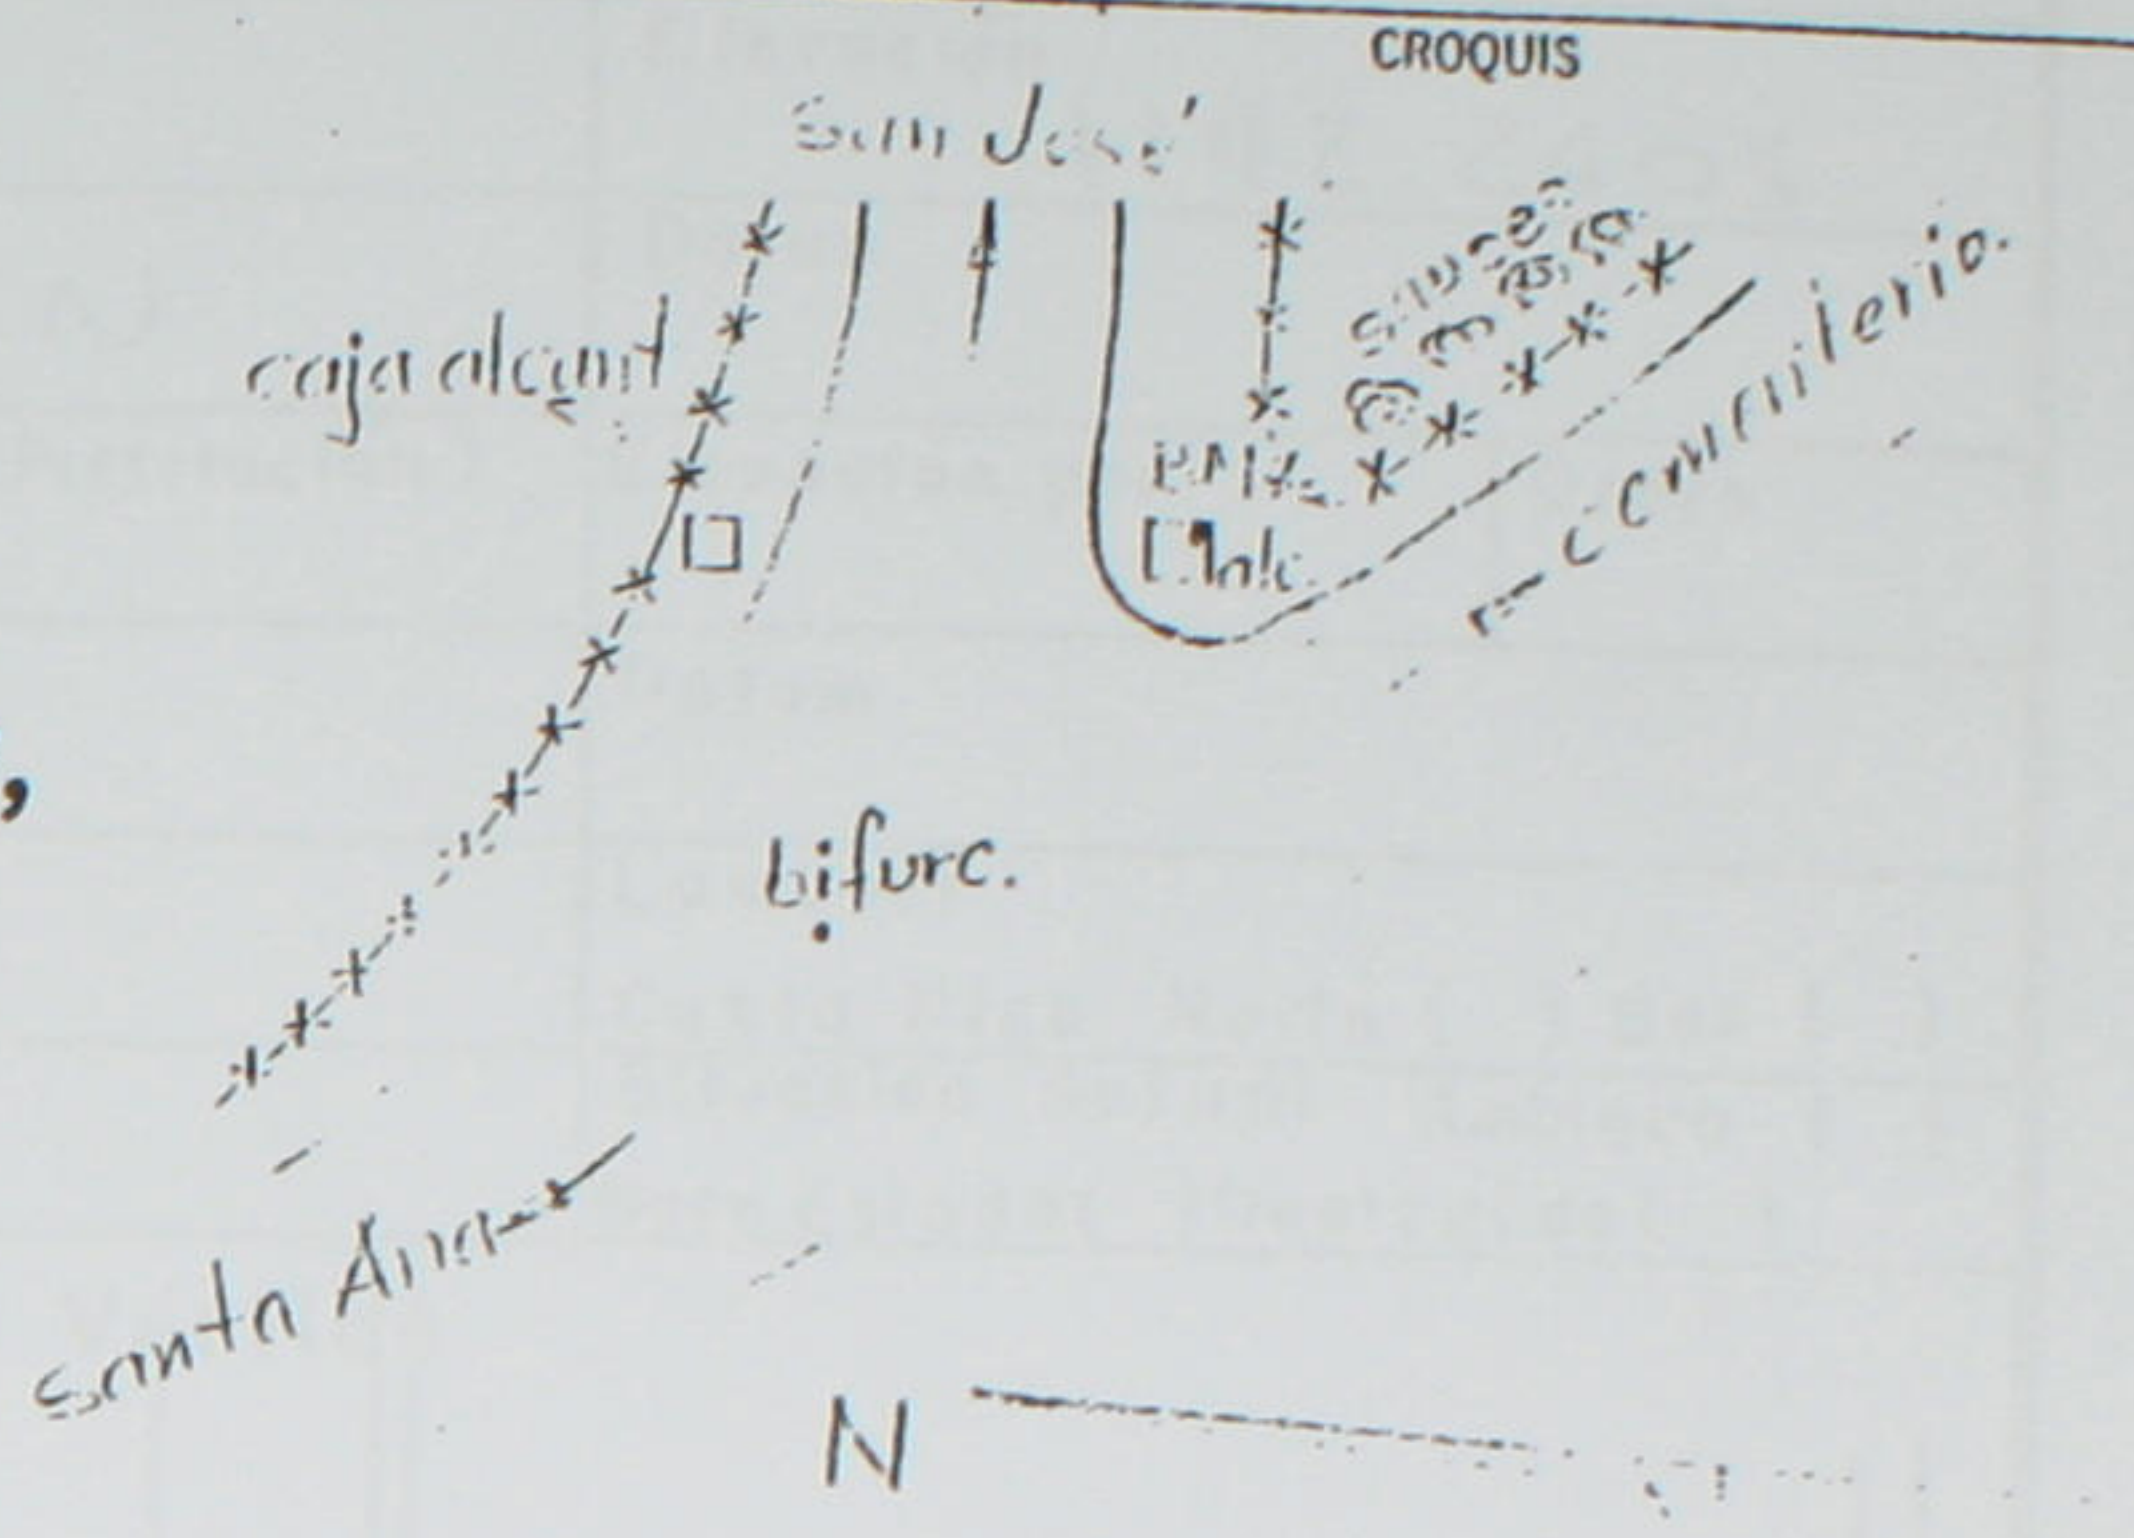 CROQUIS
San José
caja alcant
cementerio.
bifurc.
Santa Ana
N